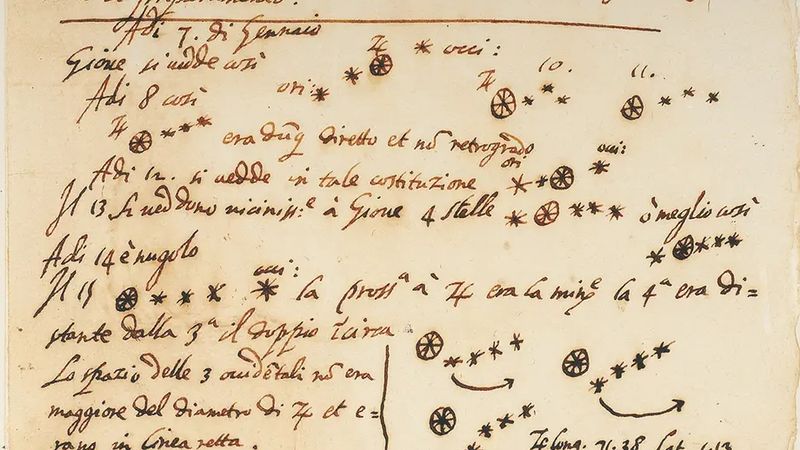 Adi 7. di Gennaio
Gioue si uedde così
ori: occi:
Adi 8 così
10. 11.
era dũq̃ diretto et nõ retrogrado
ori occi:
Adi 12. si uedde in tale costituzione
Il 13 si ueddono uiciniss:e à Gioue 4 stelle ò meglio così
Adi 14 è nugolo
occi:
Il 15 la pross.a à ♃ era la min.e la 4.a era di=
stante dalla 3.a il doppio circa
Lo spazio delle 3 occidẽtali nõ era
maggiore del diametro di ♃ et e=
rano in linea retta.
♃ long. 71.38 Lat. 1.13